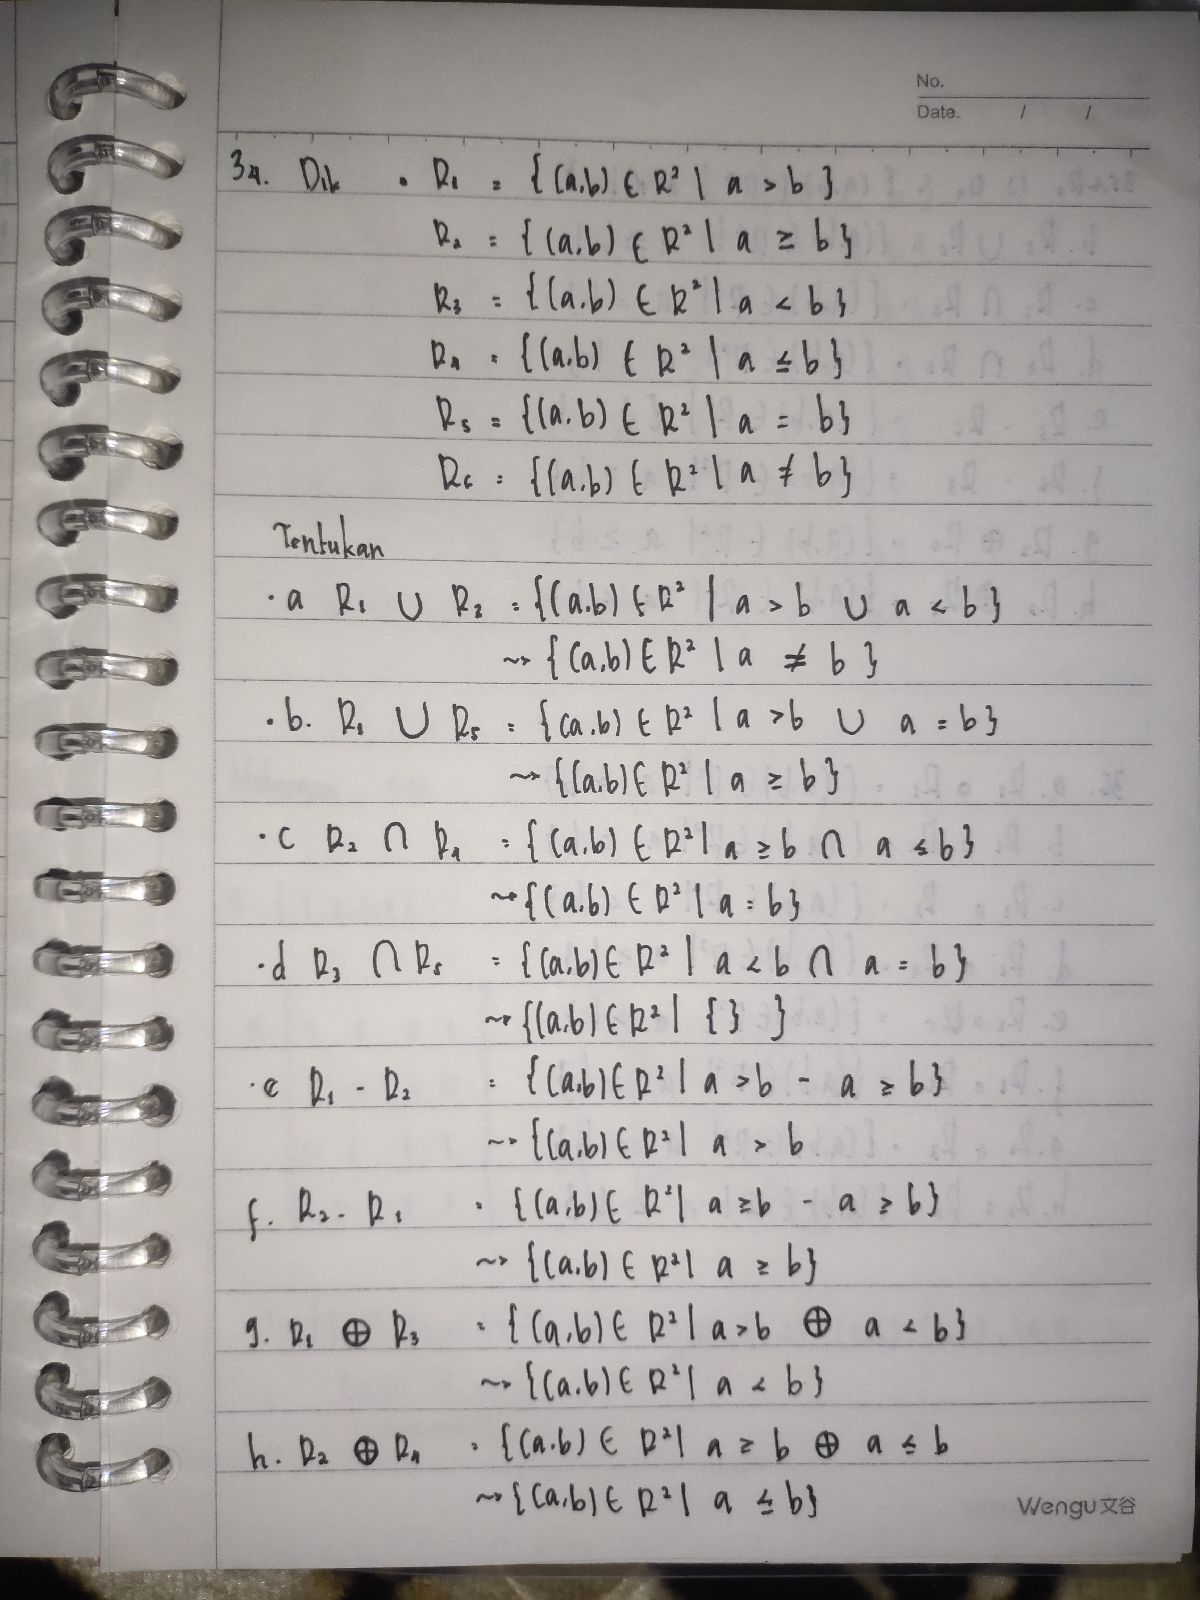 No.
Date. / /
34. Dik • R₁ = {(a,b) ∈ R² | a > b}
R₂ = {(a,b) ∈ R² | a ≥ b}
R₃ = {(a,b) ∈ R² | a < b}
R₄ = {(a,b) ∈ R² | a ≤ b}
R₅ = {(a,b) ∈ R² | a = b}
R₆ = {(a,b) ∈ R² | a ≠ b}
Tentukan
•a R₁ ∪ R₃ = {(a,b) ∈ R² | a > b ∪ a < b}
⇝ {(a,b) ∈ R² | a ≠ b}
•b. R₁ ∪ R₅ = {(a,b) ∈ R² | a > b ∪ a = b}
⇝ {(a,b) ∈ R² | a ≥ b}
•c R₂ ∩ R₄ = {(a,b) ∈ R² | a ≥ b ∩ a ≤ b}
⇝ {(a,b) ∈ R² | a = b}
•d R₃ ∩ R₅ = {(a,b) ∈ R² | a < b ∩ a = b}
⇝ {(a,b) ∈ R² | { } }
•e R₁ - R₂ = {(a,b) ∈ R² | a > b - a ≥ b}
⇝ {(a,b) ∈ R² | a > b
f. R₂ - R₁ = {(a,b) ∈ R² | a ≥ b - a ≥ b}
⇝ {(a,b) ∈ R² | a ≥ b}
g. R₁ ⊕ R₃ = {(a,b) ∈ R² | a > b ⊕ a < b}
⇝ {(a,b) ∈ R² | a < b}
h. R₂ ⊕ R₄ = {(a,b) ∈ R² | a ≥ b ⊕ a ≤ b
⇝ {(a,b) ∈ R² | a ≤ b}
Wengu文谷